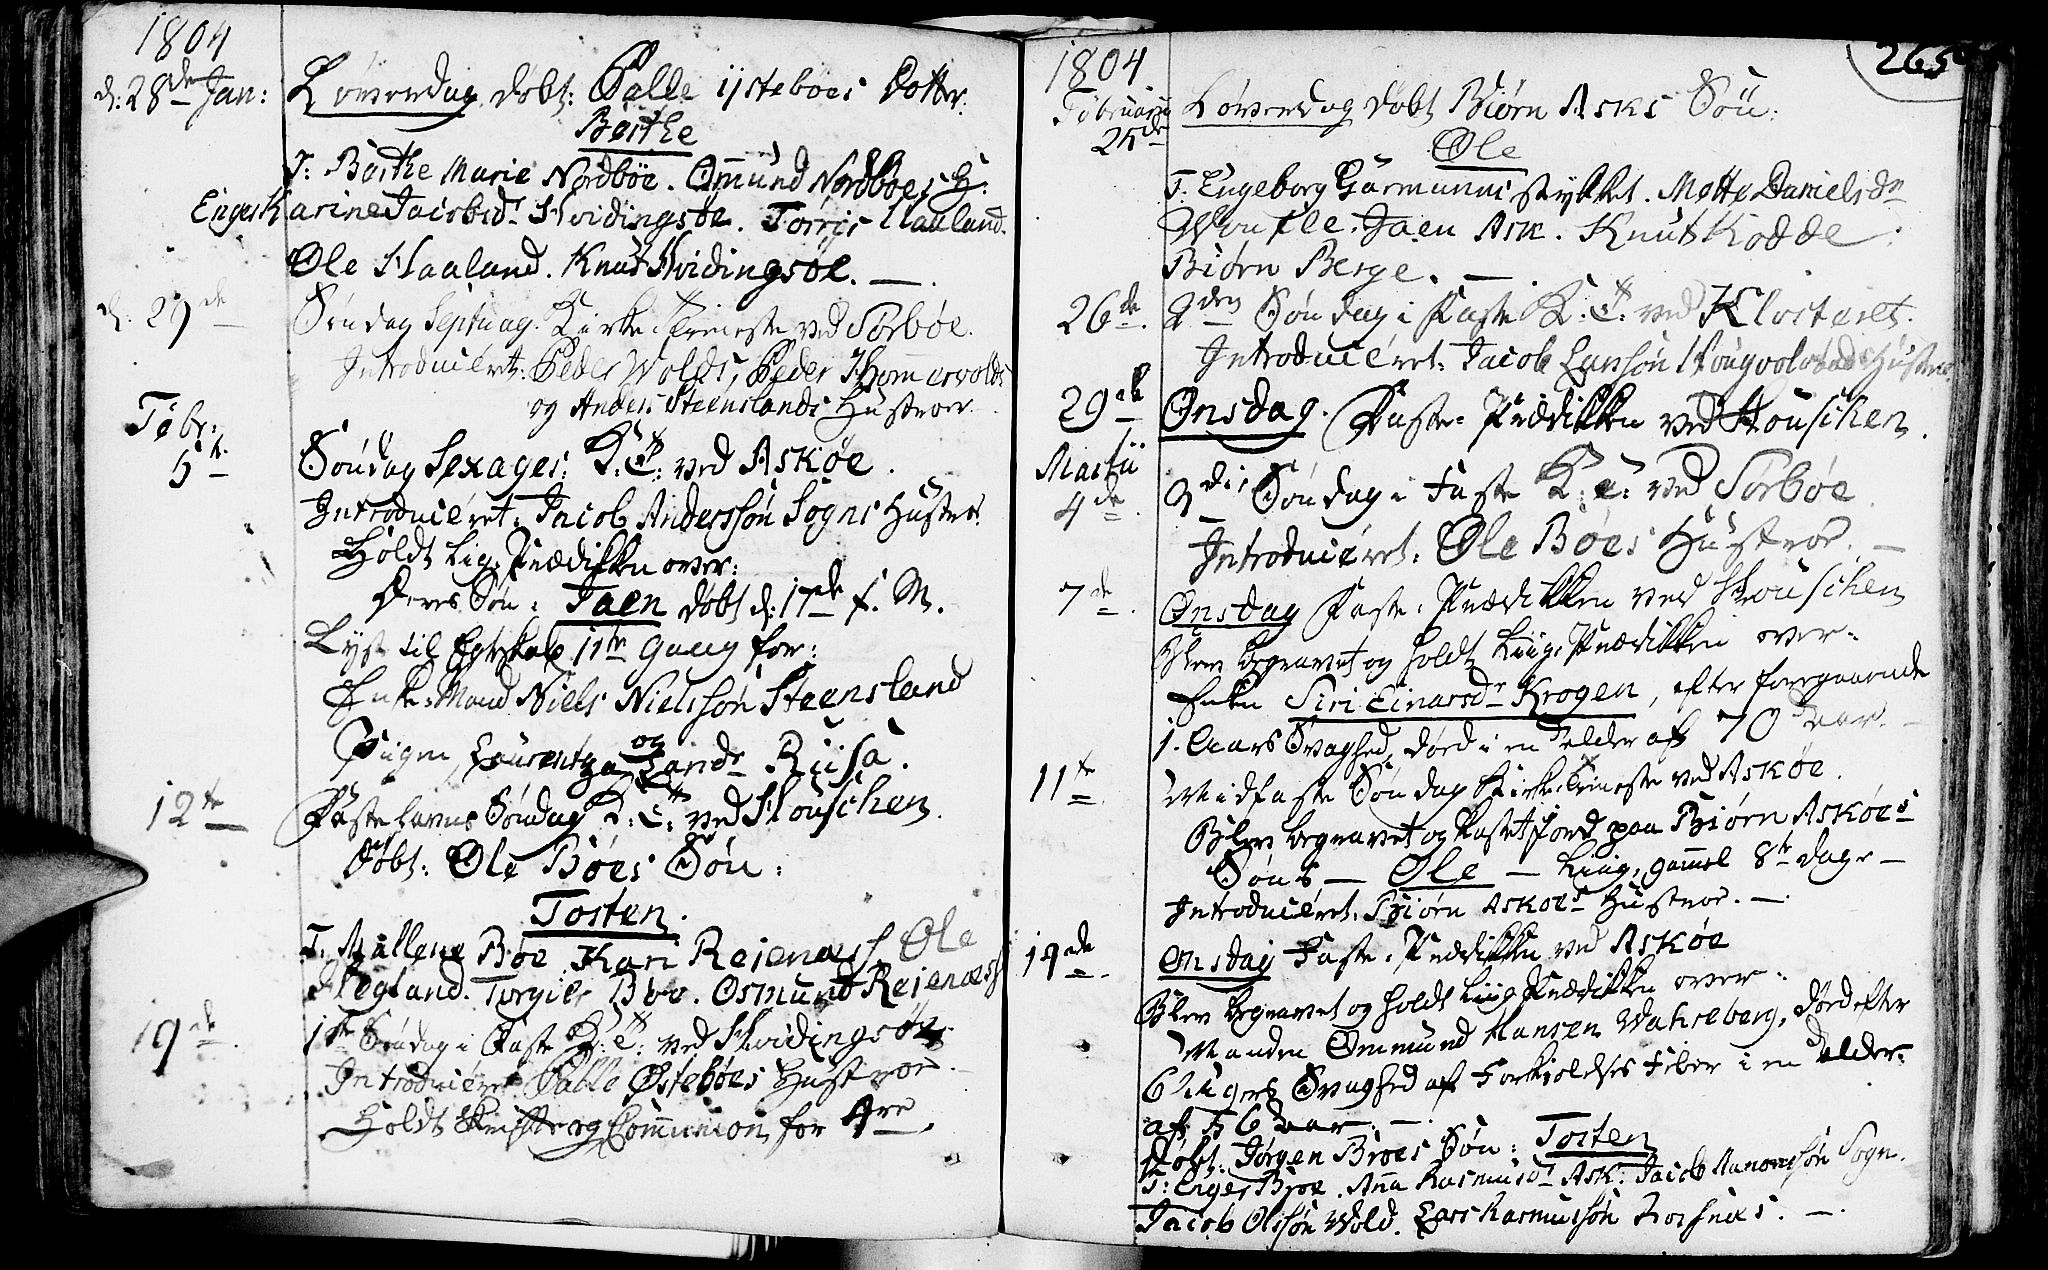 1804
d: 28de Jan: Löverdag döbt: Palle ystebøes Dotter.
Berthe
T: Berthe Marie Nordbøe. Omund Nordbøes H:
Enger Karine Jacobsdr Hvidingsøe. Torris Haaland.
Ole Haaland. Knud Hvidingsøe. —
d. 29de Söndag Septuag. Kirke-Tieneste ved Sørbøe.
Introduceret: Peder Wolds, Peder Hommersvolds
og Anders Steenslands Hustroer.
Febr:
5te Söndag Sexages: K: T: ved Askøe.
Introduceret: Jacob Anderssön Sogns Hustroe.
Holdt Liig-Prædikken over:
Deres Sön: Jaen döbt d: 17de f. M.
Lyst til Egteskab 1ste Gang for:
Enke-Mand Niels Nielssön Steensland
og
Pigen, Laurentza Larsdr Riisa.
12te Fastelavns Söndag K: T: ved Houschen.
Döbt: Ole Böes Sön:
Tosten.
T. Mallene Böe. Kari Reienæss. Ole
Hegland. Torgils Böe. Osmund Reienæss
19de. 1ste Söndag i Faste K: T: ved Hvidingsöe
Introduceret Palle Østebøes Hustroe.
Holdt Skrifte og Communion for 4re.
265
1804
Februarii Löverdag döbt Biörn Asks Sön:
25de
Ole
T. Engeborg Garmunnis stykket. Mette Danielsdr
Jaen Ask. Knut Kodde
Biörn Berge. —
26de. 2den Söndag i Faste K: T: ved Klosteret.
Introduceret: Jacob Larssön Hustroe.
29de Onsdag. Faste-Prædikken ved Houschen.
Martii
4de. 3die Söndag i Faste K: T: ved Sørbøe
Introduceret: Ole Böes Hustroe. —
7de. Onsdag Faste-Prædikken ved Houschen
Blev begravet og holdt Liig-Prædikken over:
Enken Siri Einarsdr Krogen, efter foregaaende
1. Aars Svaghed, död i en Alder af 70 Aar. —
11te Midfaste Söndag Kirke-Tieneste ved Askøe.
Blev begravet og kastet Jord paa Biörn Askøes
Söns — Ole — Liig, gammel 8te dage —
Introduceret: Biörn Askøes Hustroe. —
14de. Onsdag Faste-Prædikken ved Askøe
Blev begravet og holdt Liig Prædikken over:
Manden Ommund Hansen Wahreberg, död efter
6 Ugers Svaghed af Forkiölelses Feber i en Alder
af 56 Aar. —
Döbt: Jörgen Broes Sön: Tosten
T: Enger Broe. Anna Rasmusdr Ask. Jacob Aanenssön Sogn.
Jacob Olssön Wold. Lars Rasmussön —